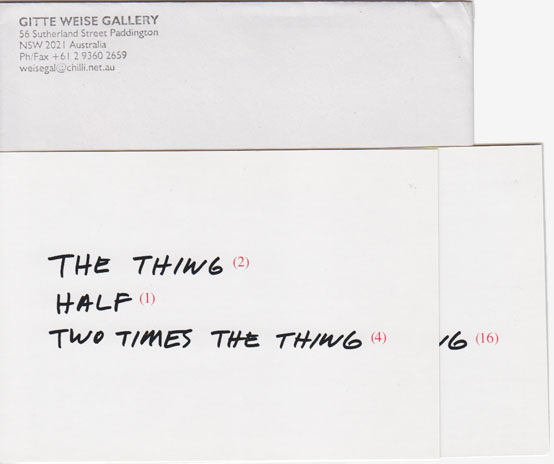 GITTE WEISE GALLERY
56 Sutherland Street Paddington
NSW 2021 Australia
Ph/Fax +61 2 9360 2659
weisegal@chilli.net.au
THE THING (2)
HALF (1)
TWO TIMES THE THING (4)
G (16)